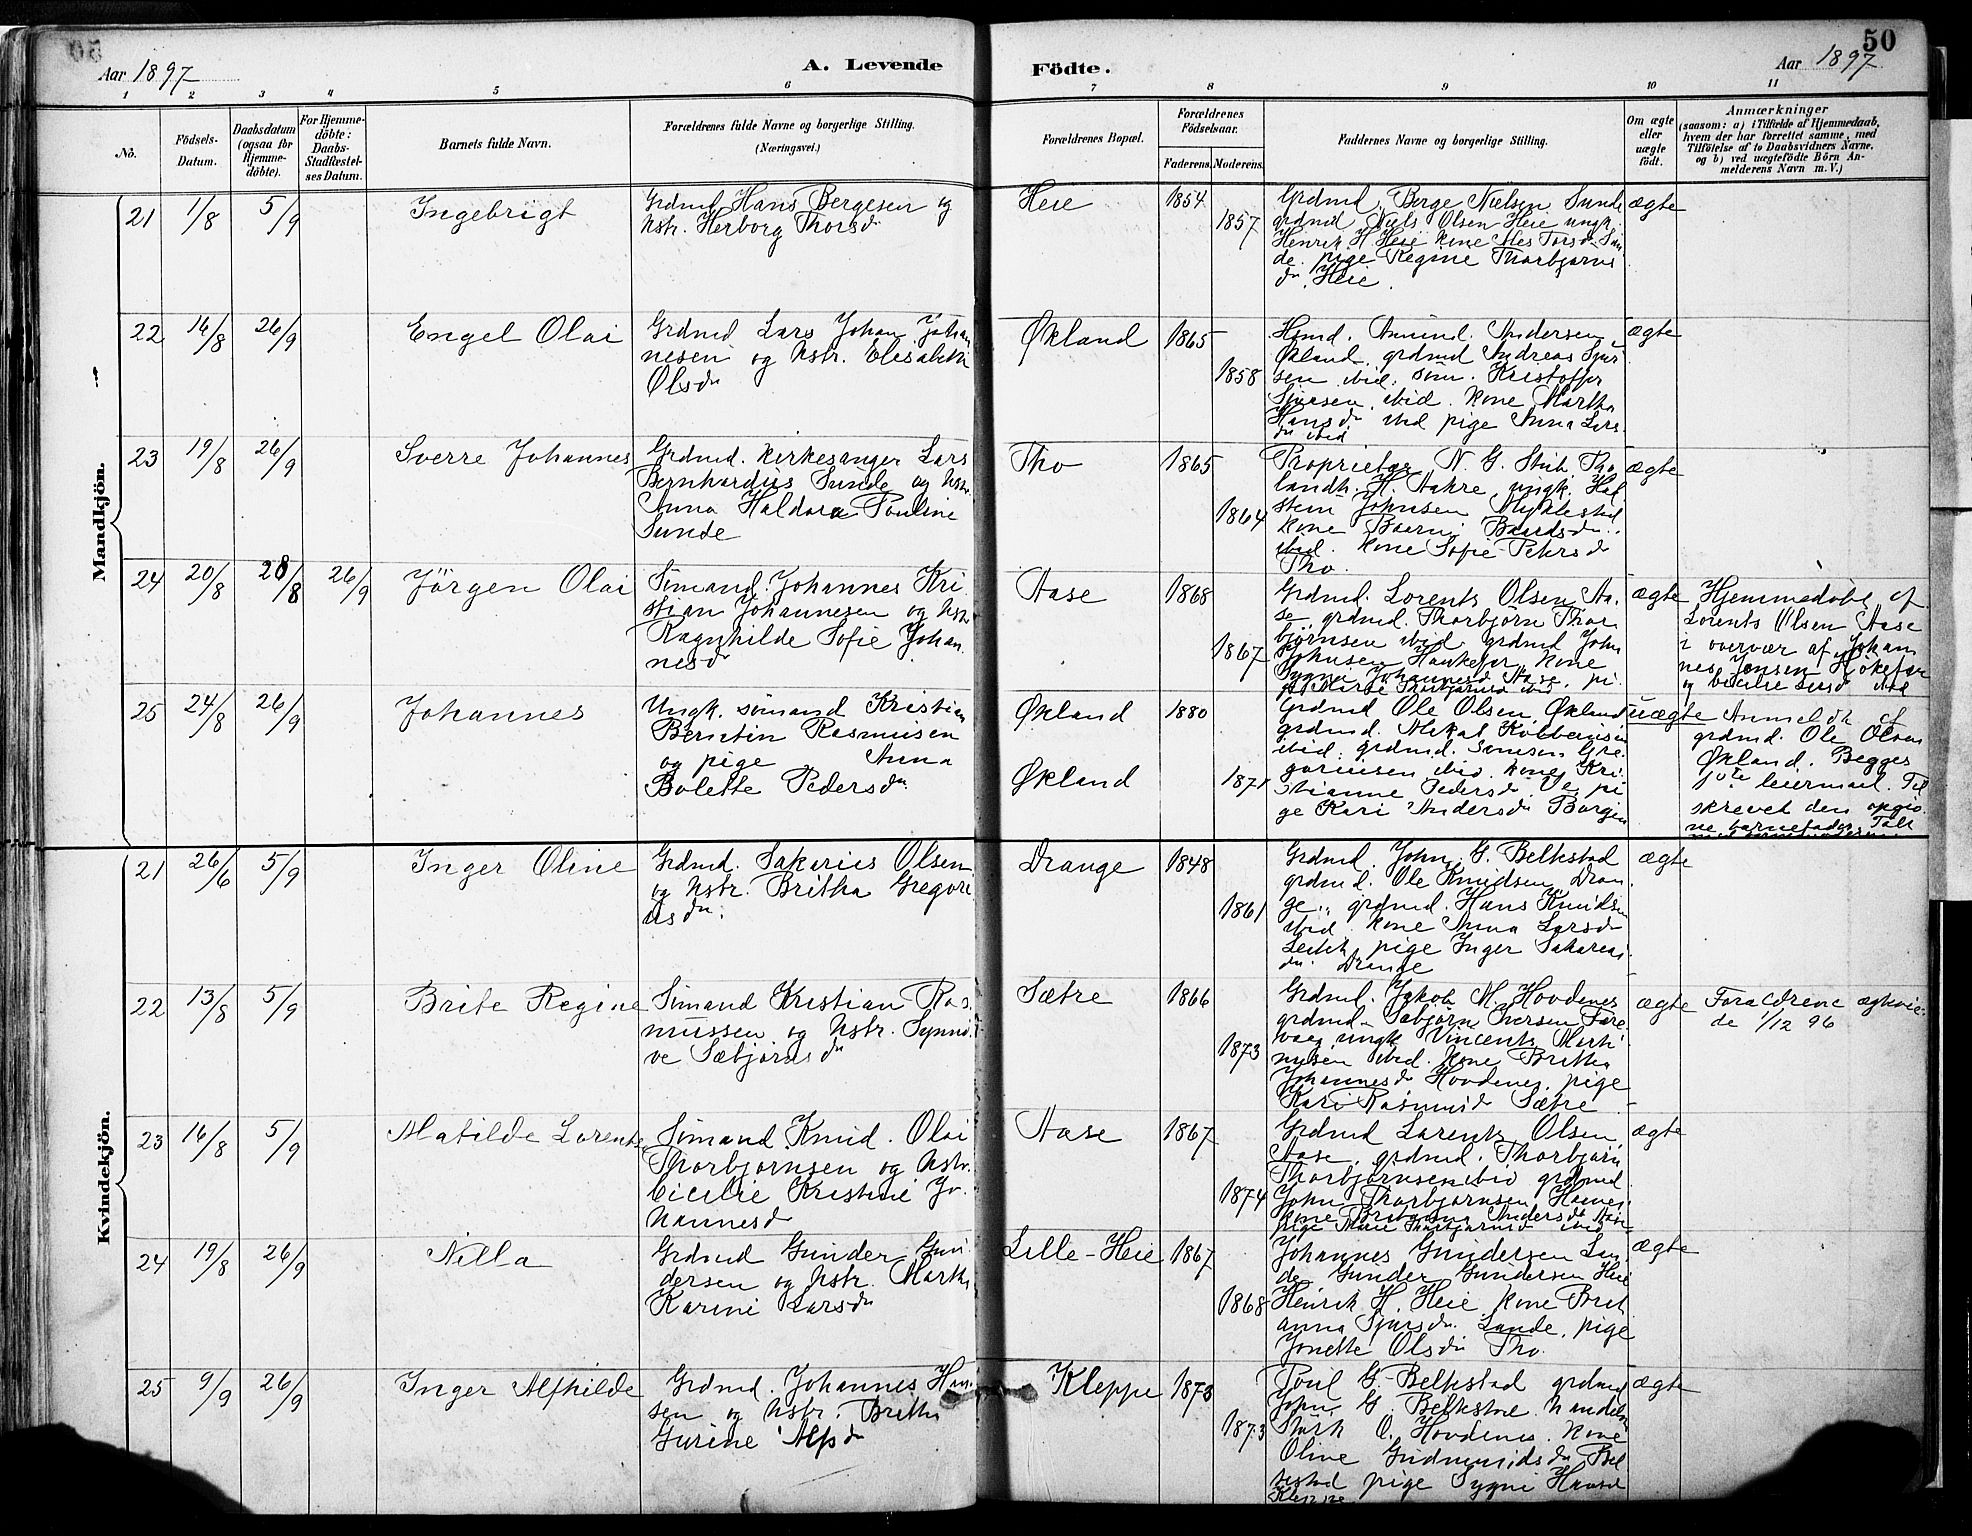 Aar 1897
A. Levende
Födte.
Aar 1897
50
1 2 3 4 5 6 7 8 9 10 11
No.
Födsels-
Datum.
Daabsdatum
(ogsaa for
Hjemme-
döbte).
For Hjemme-
döbte:
Daabs-
Stadfæstel-
ses Datum.
Barnets fulde Navn.
Forældrenes fulde Navne og borgerlige Stilling.
(Næringsvei.)
Forældrenes Bopæl.
Forældrenes
Födselsaar.
Faderens. Moderens.
Faddernes Navne og borgerlige Stilling.
Om ægte
eller
uægte
födt.
Anmærkninger
(saasom: a) i Tilfælde af Hjemmedaab,
hvem der har forrettet samme, med
Tilföielse af to Daabsvidners Navne,
og b) ved uægtefödte Börn An-
melderens Navn m. V.)
Mandkjön.
21 1/8 5/9
Ingebrigt
Grdmd Hans Bergesen og
hstr. Herborg Thorsd
Heie
1854
1857
Grdmd. Berge Nielsen Sunde
grdmd Niels Olsen Heie ungk.
Henrik H Heie kone
de. pige Regine Thorbjørns
dr. Heie.
ægte
22 16/8 26/9
Engel Olai
Grdmd Lars Johan Johan
nesen og hstr. Elesabeth
Olsdr
Økland
1865
1858
Amund. Andersen
Økland, grdmd Andreas Sjur
sen ibid. søn. Kristoffer
Sjursen. ibid. kone Martha
Hansdr ibid pige Anna Lars
dr ibid
ægte
23 19/8 26/9
Sverre Johannes
Grdmd. kirkesanger Lars
Bernhardus Sunde og hstr.
Anna Haldora Pauline
Sunde
Tho
1865
1864
Proprietær N. G. Stub Tho
landh. H. Aakre, ungk. Hal
stein Johnsen Myklestad
kone Baardsdr.
ibid. kone Sofie Petersd
Tho.
ægte
24 20/8 28/8 26/9
Jörgen Olai
Sömand. Johannes Kri
stian Johannesen og hstr
Ragnhilde Sofie Johan
nesd
Aase
1868
1867
Grdmd. Lorents Olsen Aa
se, grdmd. Thorbjörn Thor
björnsen ibid grdmd John
Johnsen kone
Johannesd Aase, pi
ge Marie Thorbjørnsd ibid
ægte
Hjemmedöbt af
Lorents Olsen Aase
i overvær af Johan
nes Jensen
og
25 24/8 26/9
Johannes
Ungk. sömand Kristian
Berntin Rasmusen
og pige Anna
Bolette Pedersdr.
Økland
Økland
1880
1871
Grdmd Ole Olsen, Økland
grdmd. Mikal
ibid. grdmd. Gre
goriusen ibid, kone Kri
stianne Pedersd pi
ge Kari Andersdr
uægte
Anmeldt af
grdmd. Ole Olsen
Økland. Begges
1ste leiermaal. Til
skrevet den opgiv
ne barnefader
Kvindekjön.
21 26/6 5/9
Inger Oline
Grdmd. Sakarius Olsen
og hstr. Britha Gregori
usdr.
Drange
1848
1861
Grdmd. John G. Belkstad
grdmd. Ole Knudsen Dran
ge., grdmd. Hans Knudsen
ibid. kone Anna Larsdr
pige Inger Sakarias
dr. Drange
ægte
22 13/8 5/9
Brite Regine
Sömand Kristian Ras
mussen og hstr. Synnö
ve Sæbjörnsdr
Sætre
1866
1873
Grdmd. Jakob M. Hovdenes
grdmd. Sæbjörn Iversen Fære
vaag ungk Vincents Marti
nusen ibid. kone Britha
Johannesdr Hovdenes. pige
Kari Rasmusd Sætre
ægte
Forældrene ægtevie
de 1/12 96
23 16/8 5/9
Matilde Lorentse
Sömand Knud. Olai
Thorbjörnsen og hstr.
Cicilie Kristine Jo
hannesd
Aase
1867
1874
Grdmd Lorents Olsen
Aase, grdmd. Thorbjörn
Thorbjörnsen ibid grdmd
John Thorbjörnsen
kone Andersdr Aase
pige Marie Thorbjörnsd ibid
ægte
24 19/8 26/9
Nilla
Grdmd Gunder Gun
dersen og hstr. Marthe
Karine Larsdr
Lille-Heie
1867
1868
Johannes Gundersen Lun
de Gunder Gundersen Heie
Henrik H. Heie kone Brit
anna Sjursdr. Lunde, pige
Jonette Olsdr Tho.
ægte
25 9/9 26/9
Inger Alfhilde
Grdmd. Johannes Han
sen og hstr. Britha
Gurine Alfsdr
Kleppe
1873
1873
Poul G. Belkstad grdmd
John G. Belkstad handels
O. Hovdenes. kone
Oline Gudmundsdr Bel
kestad pige Sygni Hansd
Kleppe
ægte